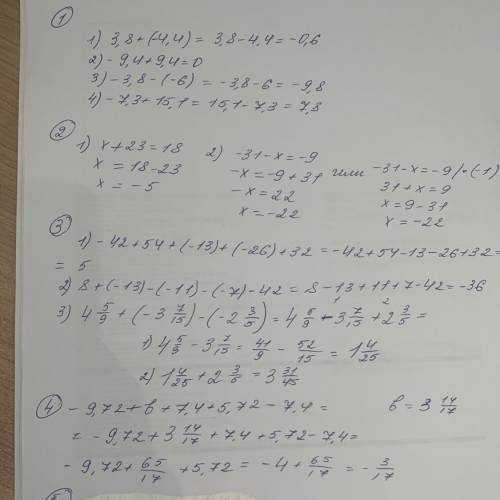 ①
1) 3,8+(-4,4) = 3,8-4,4 = -0,6
2) -9,4+9,4=0
3) -3,8-(-6) = -3,8-6 = -9,8
4) -7,3+15,1 = 15,1-7,3 = 7,8
②
1) x+23=18
x = 18-23
x = -5
2) -31-x=-9
-x=-9+31
-x=22
x=-22
или
-31-x=-9/·(-1)
31+x=9
x=9-31
x=-22
③
1) -42+54+(-13)+(-26)+32=-42+54-13-26+32=
= 5
2) 8+(-13)-(-11)-(-7)-42=8-13+11+7-42=-36
3) 4 5/9 + (-3 7/15) - (-2 3/5) = 4 5/9 - 3 7/15 + 2 3/5 =
1) 4 5/9 - 3 7/15 = 41/9 - 52/15 = 1 4/25
2) 1 4/25 + 2 3/5 = 3 31/45
④ -9,72+b+7,4+5,72-7,4= b=3 14/17
= -9,72+3 14/17+7,4+5,72-7,4=
-9,72+65/17+5,72=-4+65/17=-3/17